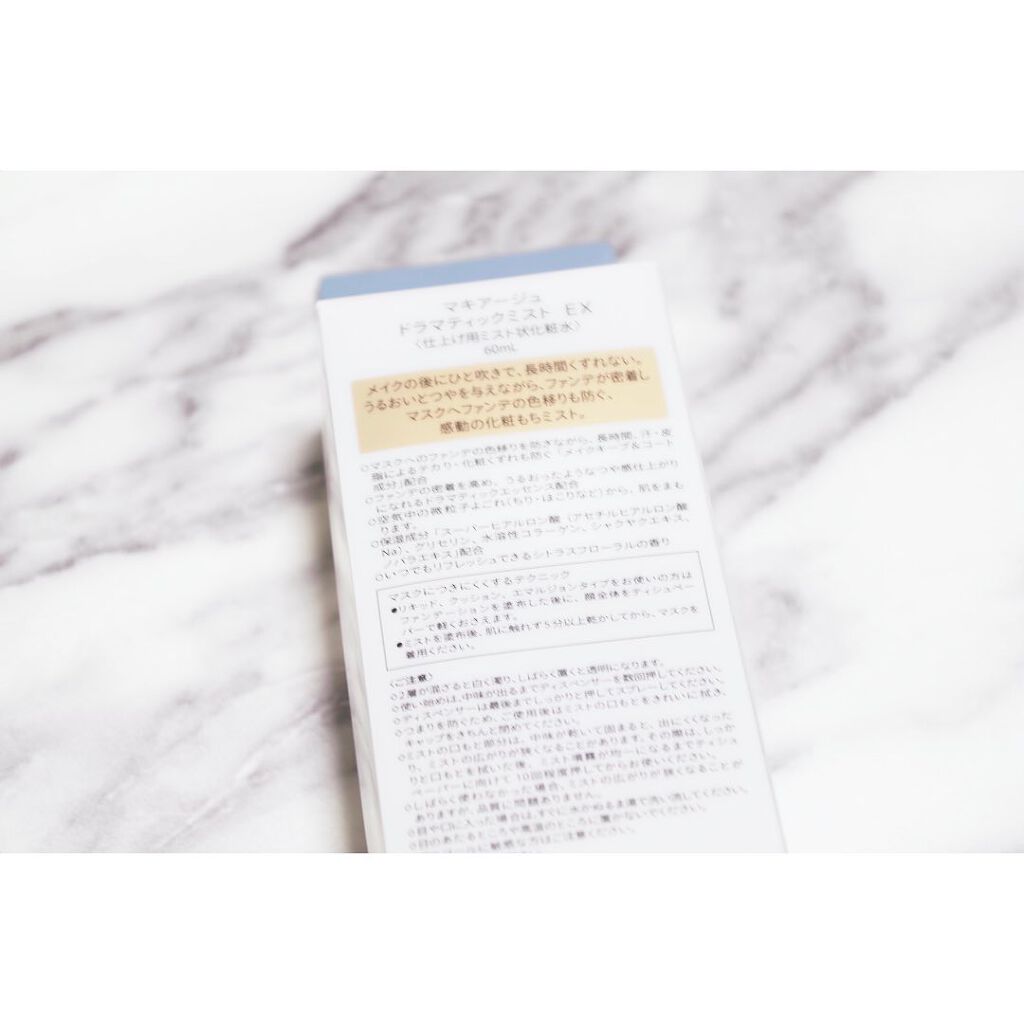 マキアージュ
ドラマティックミスト EX
〈仕上げ用ミスト状化粧水〉
60mL
メイクの後にひと吹きで、長時間くずれない。
うるおいとつやを与えながら、ファンデが密着し
マスクへファンデの色移りも防ぐ、
感動の化粧もちミスト。
○マスクへのファンデの色移りを防ぎながら、長時間、汗・皮
脂によるテカリ・化粧くずれも防ぐ「メイクキープ&コート
成分」配合
○ファンデの密着を高め、うるおったようなつや感仕上がり
になれるドラマティックエッセンス配合
○空気中の微粒子よごれ(ちり・ほこりなど)から、肌をまも
ります。
○保湿成分「スーパーヒアルロン酸（アセチルヒアルロン酸
Na）、グリセリン、水溶性コラーゲン、シャクヤクエキス、
ノバラエキス」配合
○いつでもリフレッシュできるシトラスフローラルの香り
マスクにつきにくくするテクニック
●リキッド、クッション、エマルジョンタイプをお使いの方は
ファンデーションを塗布した後に、顔全体をティシュペー
パーで軽くおさえます。
●ミストを塗布後、肌に触れず5分以上乾かしてから、マスクを
着用ください。
〈ご注意〉
○2層が混ざると白く濁り、しばらく置くと透明になります。
○使い始めは、中味が出るまでディスペンサーを数回押してください。
○ディスペンサーは最後までしっかりと押してスプレーしてください。
○つまりを防ぐため、ご使用後はミストの口もとをきれいに拭き、
キャップをきちんと閉めてください。
○ミストの口もと部分は、中味が乾いて固まると、出にくくなった
り、ミストの広がりが狭くなることがあります。その際は、しっか
りと口もとを拭いた後、ミスト噴霧が均一になるまでティシュ
ペーパーに向けて10回程度押してからお使いください。
○しばらく使わなかった場合、ミストの広がりが狭くなることが
ありますが、品質に問題ありません。
○目や口に入った場合は、すぐに水かぬるま湯で洗い流してください。
○日のあたるところや高温のところに置かないでください。
に敏感な方はご注意ください。